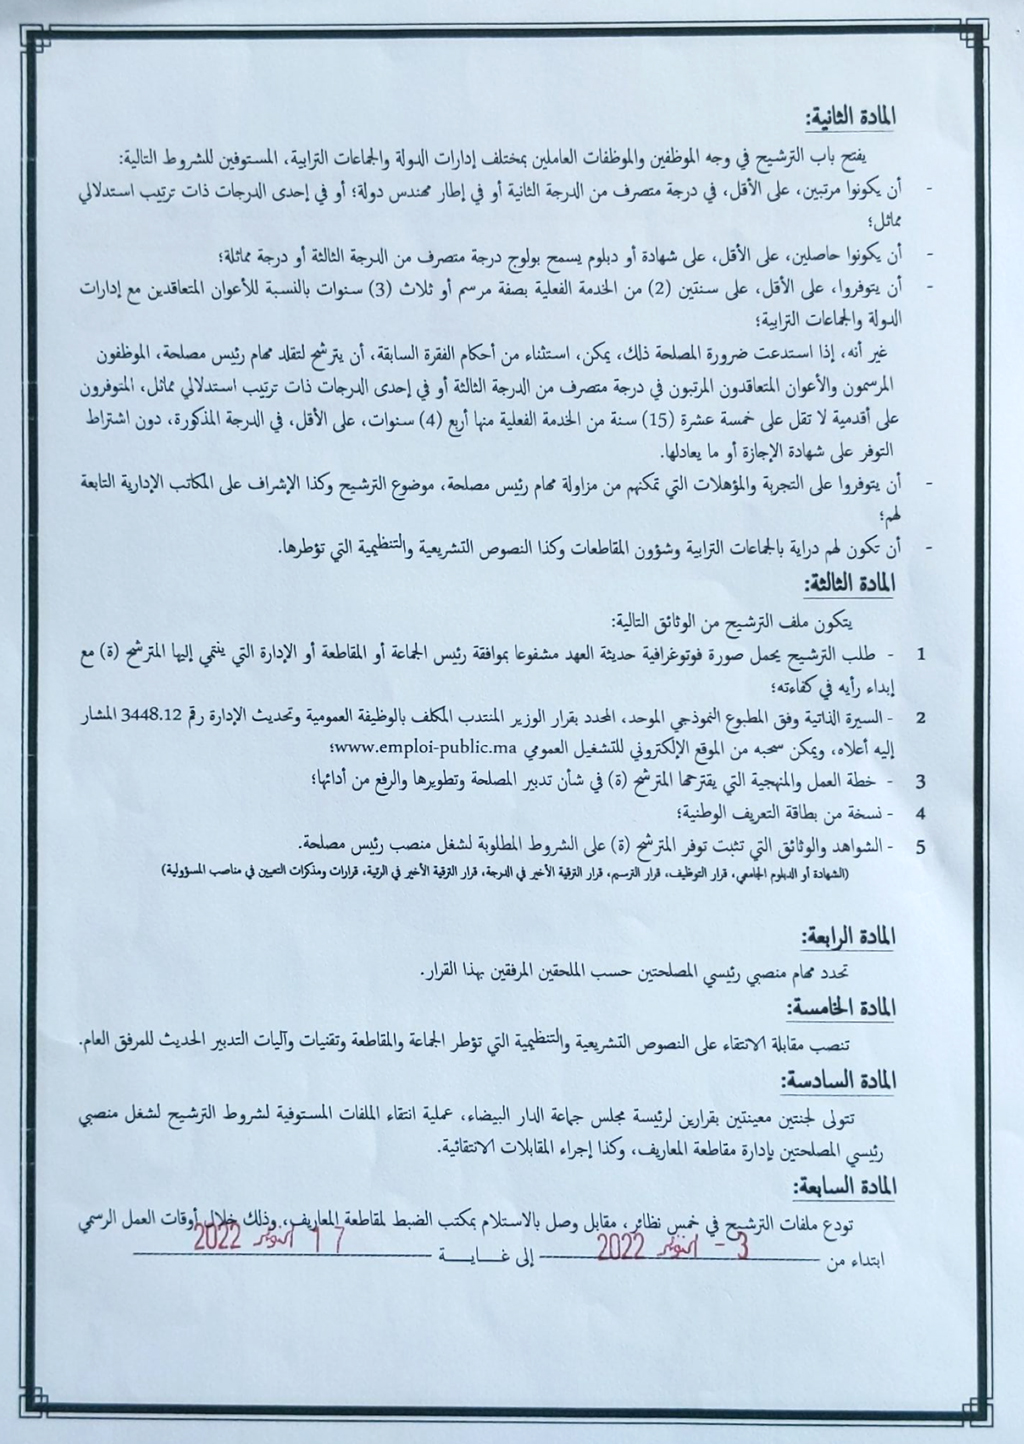 المادة الثانية:
يفتح باب الترشيح في وجه الموظفين والموظفات العاملين بمختلف إدارات الدولة والجماعات الترابية، المستوفين للشروط التالية:
- أن يكونوا مرتبين، على الأقل، في درجة متصرف من الدرجة الثانية أو في إطار مهندس دولة؛ أو في إحدى الدرجات ذات ترتيب استدلالي
مماثل؛
- أن يكونوا حاصلين، على الأقل، على شهادة أو دبلوم يسمح بولوج درجة متصرف من الدرجة الثالثة أو درجة مماثلة؛
- أن يتوفروا، على الأقل، على سنتين (2) من الخدمة الفعلية بصفة مرسم أو ثلاث (3) سنوات بالنسبة للأعوان المتعاقدين مع إدارات
الدولة والجماعات الترابية؛
غير أنه، إذا استدعت ضرورة المصلحة ذلك، يمكن، استثناء من أحكام الفقرة السابقة، أن يترشح لتقلد مهام رئيس مصلحة، الموظفون
المرسمون والأعوان المتعاقدون المرتبون في درجة متصرف من الدرجة الثالثة أو في إحدى الدرجات ذات ترتيب استدلالي مماثل، المتوفرون
على أقدمية لا تقل على خمسة عشرة (15) سنة من الخدمة الفعلية منها أربع (4) سنوات، على الأقل، في الدرجة المذكورة، دون اشتراط
التوفر على شهادة الإجازة أو ما يعادلها.
- أن يتوفروا على التجربة والمؤهلات التي تمكنهم من مزاولة مهام رئيس مصلحة، موضوع الترشيح وكذا الإشراف على المكاتب الإدارية التابعة
لهم؛
- أن تكون لهم دراية بالجماعات الترابية وشؤون المقاطعات وكذا النصوص التشريعية والتنظيمية التي تؤطرها.
المادة الثالثة:
يتكون ملف الترشيح من الوثائق التالية:
1 - طلب الترشيح يحمل صورة فوتوغرافية حديثة العهد مشفوعا بموافقة رئيس الجماعة أو المقاطعة أو الإدارة التي ينتمي إليها المترشح (ة) مع
إبداء رأيه في كفاءته؛
2 - السيرة الذاتية وفق المطبوع النموذجي الموحد، المحدد بقرار الوزير المنتدب المكلف بالوظيفة العمومية وتحديث الإدارة رقم 3448.12 المشار
إليه أعلاه، ويمكن سحبه من الموقع الإلكتروني للتشغيل العمومي www.emploi-public.ma؛
3 - خطة العمل والمنهجية التي يقترحها المترشح (ة) في شأن تدبير المصلحة وتطويرها والرفع من أدائها؛
4 - نسخة من بطاقة التعريف الوطنية؛
5 - الشواهد والوثائق التي تثبت توفر المترشح (ة) على الشروط المطلوبة لشغل منصب رئيس مصلحة.
(الشهادة أو الدبلوم الجامعي، قرار التوظيف، قرار الترسيم، قرار الترقية الأخير في الدرجة، قرار الترقية الأخير في الرتبة، قرارات ومذكرات التعيين في مناصب المسؤولية)
المادة الرابعة:
تحدد مهام منصبي رئيسي المصلحتين حسب الملحقين المرفقين بهذا القرار.
المادة الخامسة:
تنصب مقابلة الانتقاء على النصوص التشريعية والتنظيمية التي تؤطر الجماعة والمقاطعة وتقنيات وآليات التدبير الحديث للمرفق العام.
المادة السادسة:
تتولى لجنتين معينتين بقرارين لرئيسة مجلس جماعة الدار البيضاء، عملية انتقاء الملفات المستوفية لشروط الترشيح لشغل منصبي
رئيسي المصلحتين بإدارة مقاطعة المعاريف، وكذا إجراء المقابلات الانتقائية.
المادة السابعة:
تودع ملفات الترشيح في خمس نظائر، مقابل وصل بالاستلام بمكتب الضبط لمقاطعة المعاريف، وذلك خلال أوقات العمل الرسمي
ابتداء من 3 - اكتوبر 2022 إلى غـايـــة 17 اكتوبر 2022